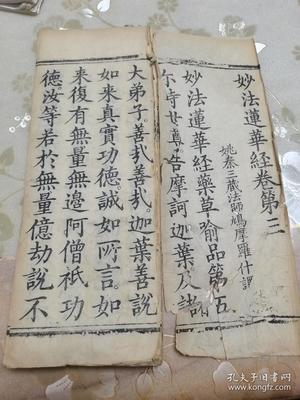 妙法蓮華經卷第三
姚秦三藏法師鳩摩羅什譯
妙法蓮華經藥草喻品第五
尒時世尊告摩訶迦葉及諸
大弟子。善哉善哉。迦葉善說
如來真實功德。誠如所言。如
來復有無量無邊阿僧祇功
德。汝等若於無量億劫說不
孔夫子旧书网